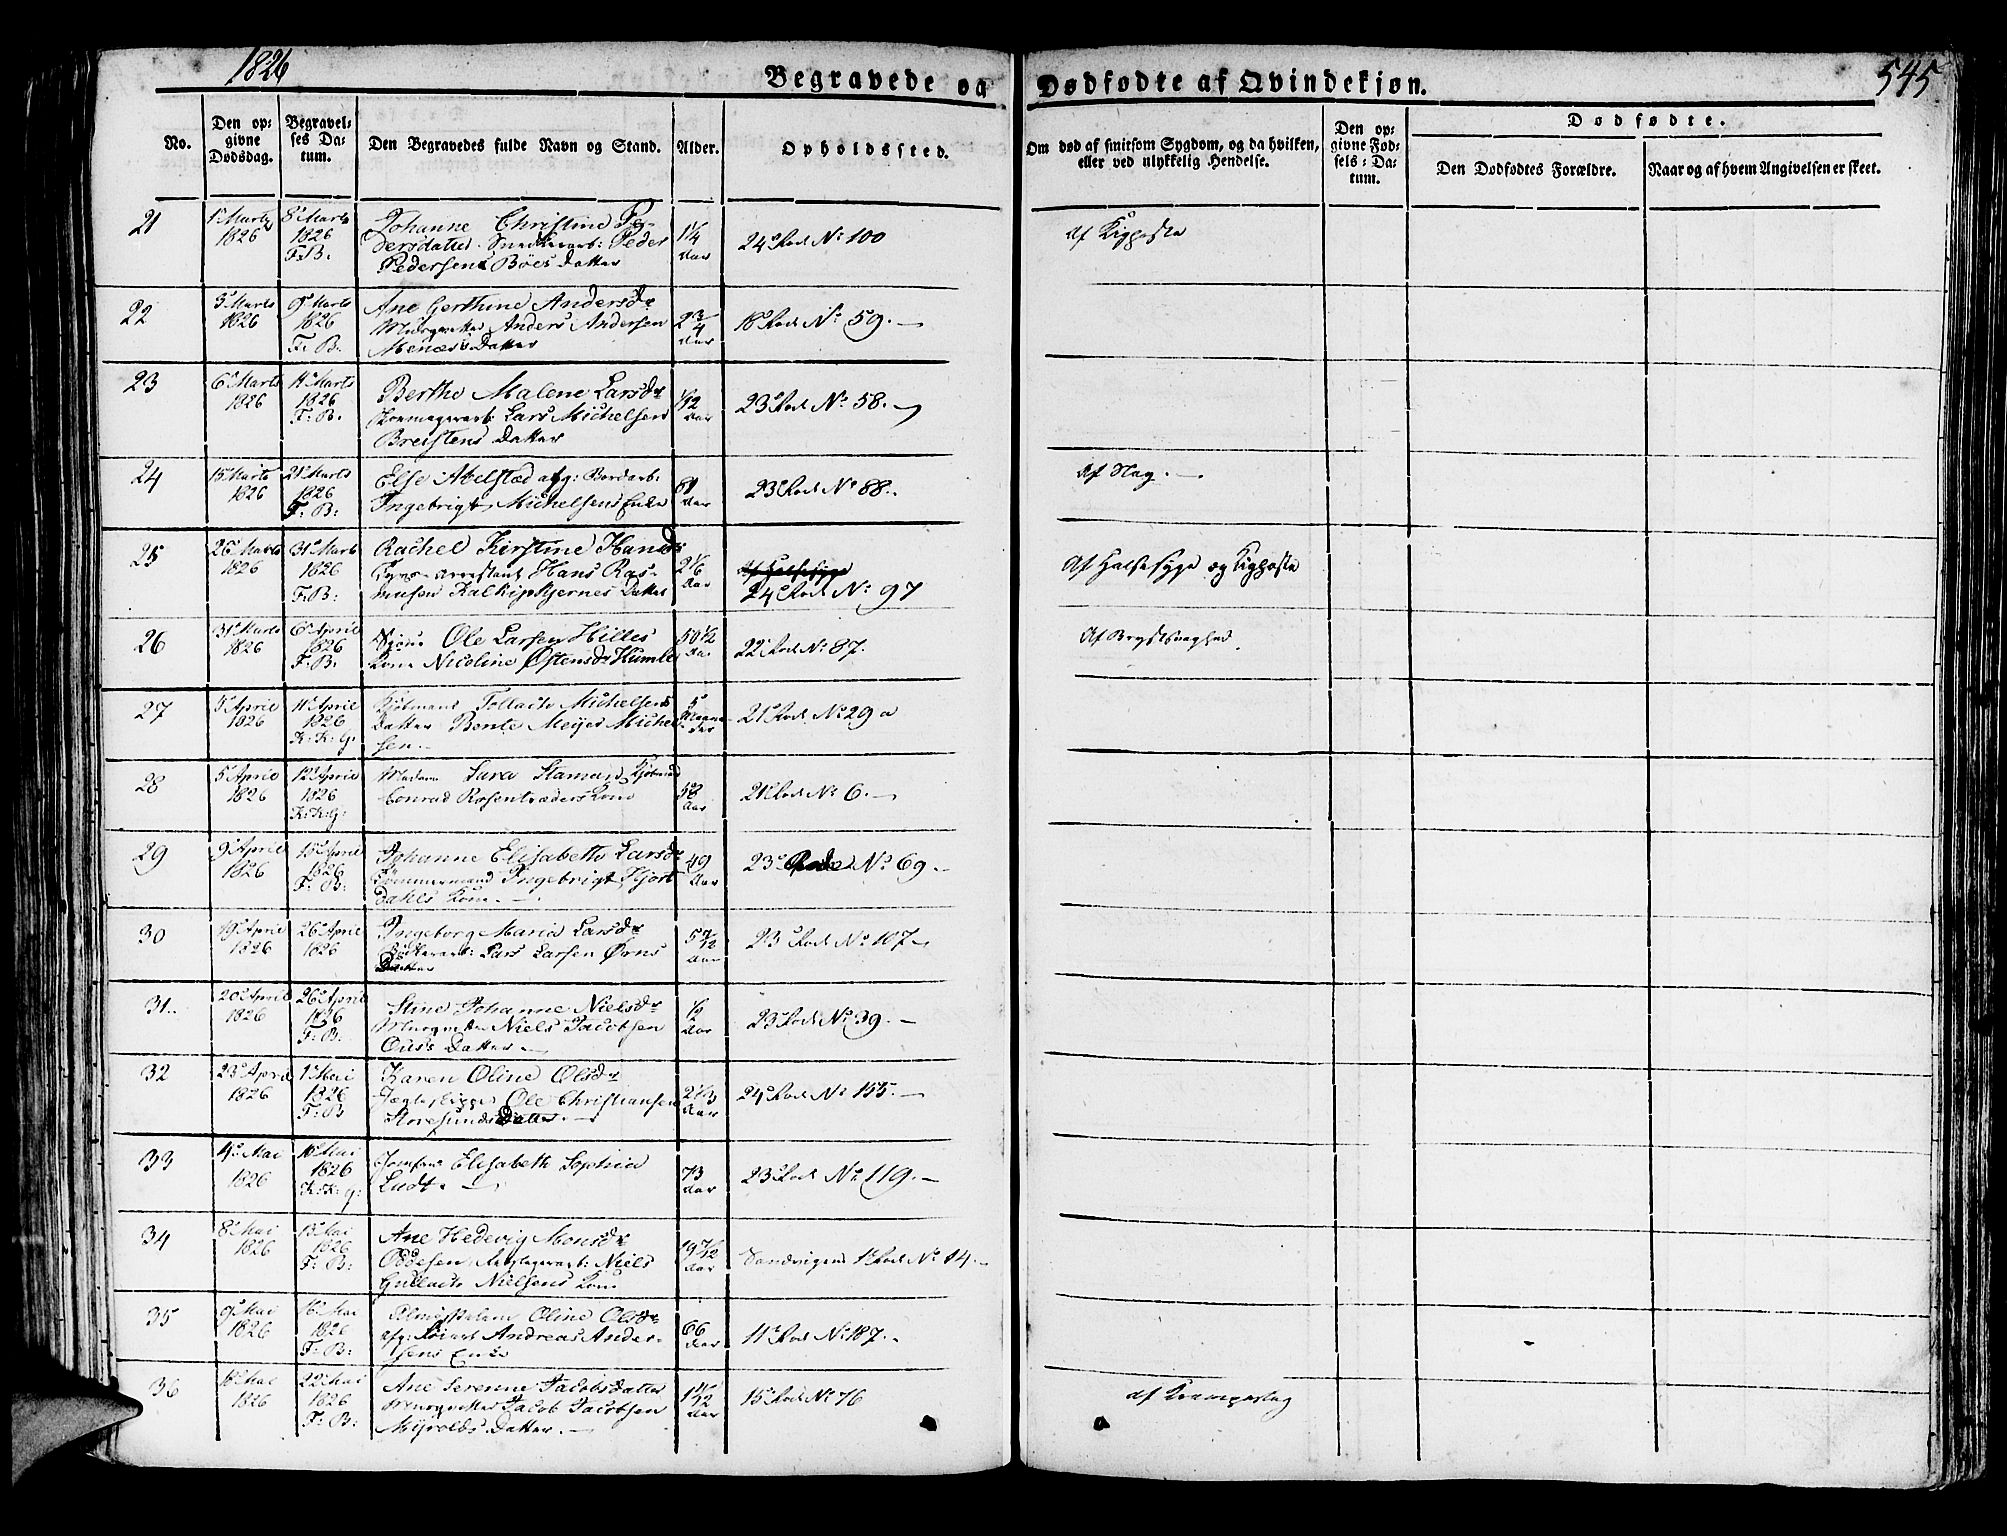 1826
545
Begravede og Dødfødte af Qvindekjøn.
No.
Den opgivne Dødsdag.
Begravelses Datum.
Den Begravedes fulde Navn og Stand.
Alder.
Opholdssted.
Om død af smitsom Sygdom, og da hvilken, eller ved ulykkelig Hendelse.
Den opgivne Fødsels-Datum.
Dødfødte.
Den Dødfødtes Forældre.
Naar og af hvem Angivelsen er skeet.
21
1 Marts 8 Marts Johanne Christine Pe-
1826 1826 dersdatter Peder 1 1/4 24 Rode No 100 Af Kighoste
F: B: Pedersens Böes Datter Aar
22
5 Marts 9 Marts Ane Gerthine Andersdr
1826 1826 Anders Andersen 2 3/4 18 Rode No 59.
F: B: Datter Aar
23
6 Marts 11 Marts Berthe Malene Larsdr
1826 1826 Lars Michelsen 1/12 23 Rode No 58.
F: B: Breistens Datter Aar
24
15 Marts 21 Marts Else Abelsted afg:
1826 1826 Ingebrigt Michelsens Enke 23 Rode No 88.
F: B: Aar
25
26 Marts 31 Marts Rachel Kirstine Hansdr
1826 1826 Hans Ras- 2 1/6 Af Halsesyge og Kighoste
F: B: musen Datter Aar 24 Rode No 97
26
31 Marts 6 April Ole Larsen Hilles 50 1/2
1826 1826 Kone Nicoline Østensdr Humle Aar 22 Rode No 87. Af Brystsvaghed
F: B:
27
5 April 11 April Kjøbmand Tollach Michelsens 5
1826 1826 Datter Bente Meyer Michel- Maaneder 21 Rode No 29 a
K: K: G: sen.
28
5 April 12 April Madame Sara Kjøbmand
1826 1826 Conrad Rosentræders Kone 58 Aar 21 Rode No 6.
K: K: G:
29
9 April 15 April Johanne Elisabeth Larsdr
1826 1826 Tömmermand Ingebrigt Hjort- 49 23 Rode No 69.
F: B: dahls Kone. Aar
30
19 April 26 April Ingeborg Maria Larsdr
1826 1826 Lars Larsen Örns 23 Rode No 107
Datter Aar
31
20 April 26 April Stine Johanne Nielsdr
1826 1826 Niels Jacobsen 1/2 23 Rode No 39.
F: B: Datter Aar
32
23 April 1 Mai Karen Oline Olsdr
1826 1826 Ole Christiansen 2 1/3 24 Rode No 155.
F: B: Storesunds Datter. Aar
33
4 Mai 10 Mai Jomfru Elisabeth Sophia
1826 1826 Ludt. 73 23 Rode No 119.
K: K: G: Aar
34
8 Mai 13 Mai Ane Hedevig Monsdr
1826 1826 Oddesen, Niels 19 7/12 Sandvigens 1 Rode No 14.
F: B: Gullach Nielsens Kone Aar
35
9 Mai 16 Mai Oline Olsdr
1826 1826 afg: Andreas Ander- 66 11 Rode No 187.
F: B: sens Enke Aar
36
16 Mai 22 Mai Ane Serenne Jacobsdatter
1826 1826 Jacob Jacobsen 15 Rode No 76 af Krampeslag
F: B: Myrolds Datter. Aar